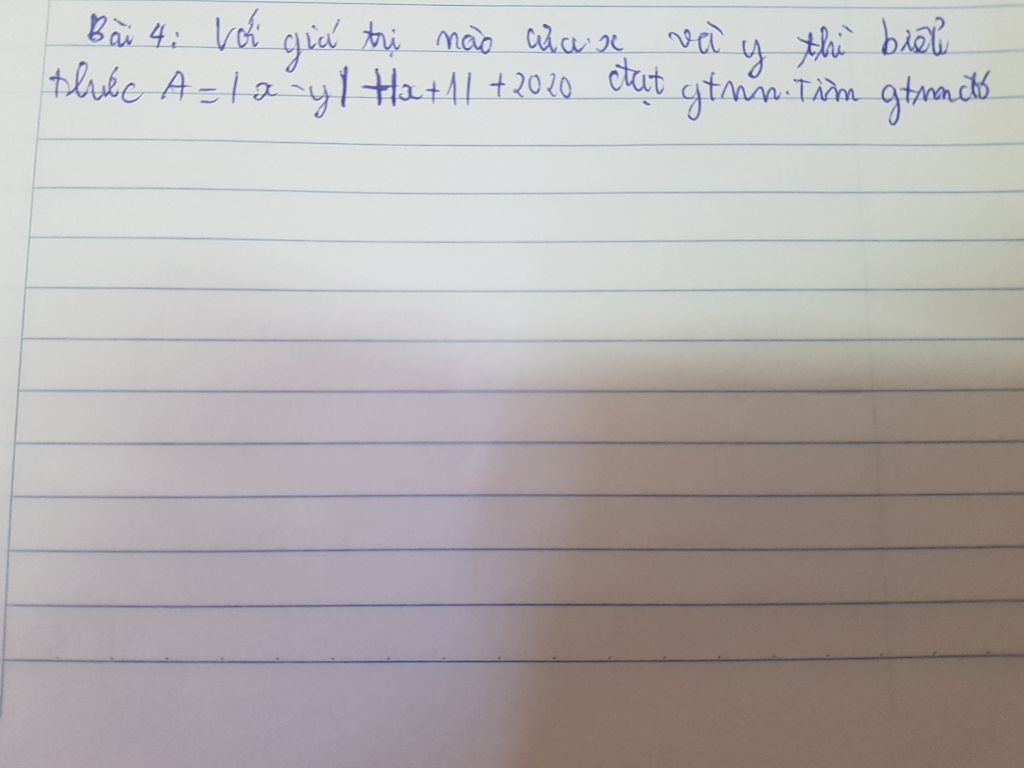 Bài 4: Với giá trị nào của x và y thì biểu
thức A = |x - y| + |x + 1| + 2020 đạt gtnn. Tìm gtnn đó